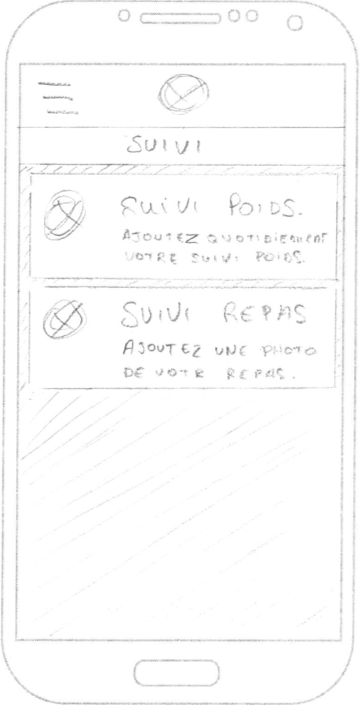 SUIVI
SUIVI POIDS.
AJOUTEZ QUOTIDIENMENT
VOTRE SUIVI POIDS.
SUIVI REPAS
AJOUTEZ UNE PHOTO
DE VOTR REPAS.